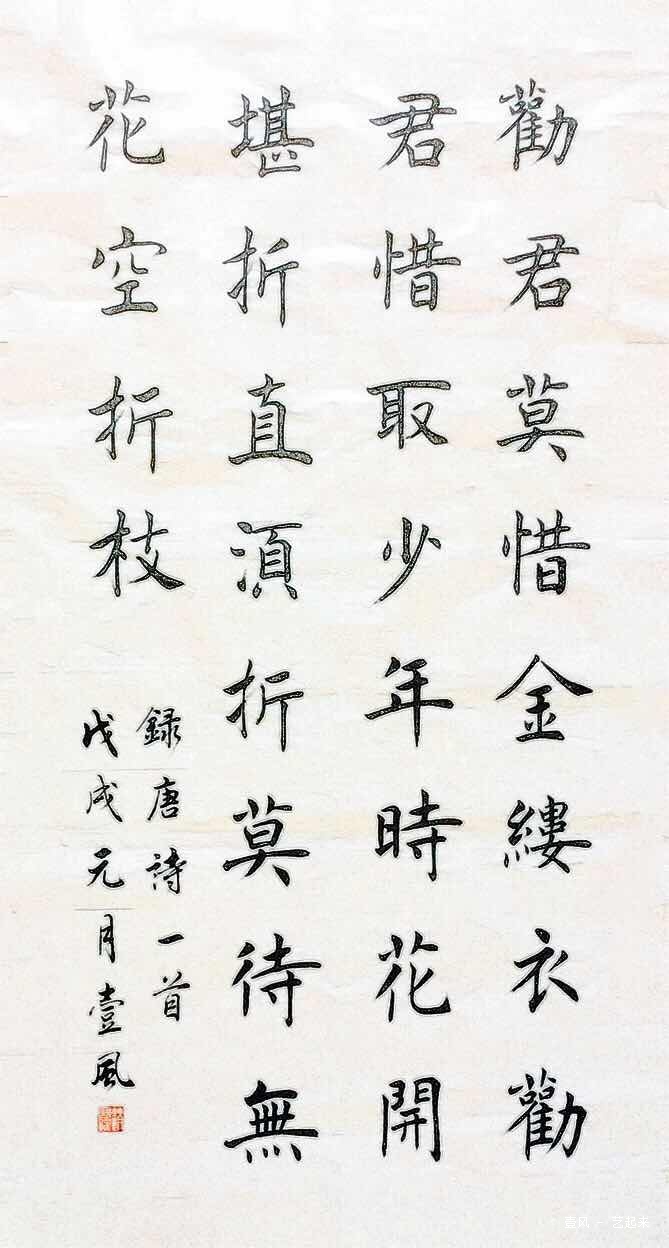 勸君莫惜金縷衣勸
君惜取少年時花開
堪折直湏折莫待無
花空折枝
録唐詩一首
戊戌元月壹風